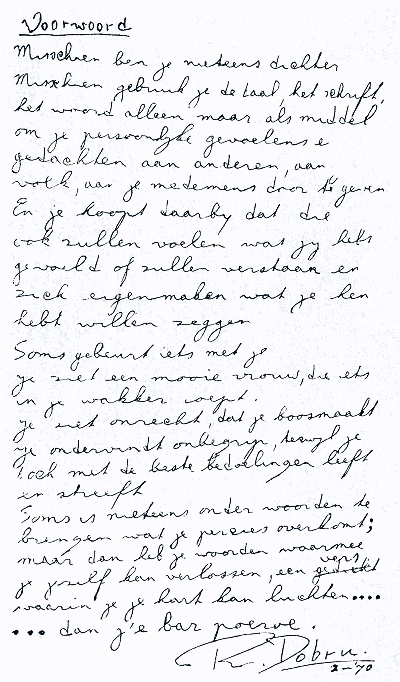 Voorwoord
Misschien ben je niet eens dichter
Misschien gebruik je de taal, het schrift,
het woord alleen maar als middel
om je persoonlijke gevoelens e
gedachten aan anderen, aan
volk, aan je medemens door te geven
En je hoopt daarby dat die
ook zullen voelen wat jy hebt
gevoeld of zullen verstaan en
zich eigenmaken wat je hen
hebt willen zeggen
Soms gebeurt iets met je
je ziet een mooie vrouw, die iets
in je wakker roept.
je ziet onrecht, dat je boosmaakt
je ondervindt onbegrip, terwyl je
toch met de beste bedoelingen leeft
en streeft
Soms is niet eens onder woorden te
brengen wat je precies overkomt;
maar dan heb je woorden waarmee
je jezelf kan verlossen, een vers
waarin je je hart kan luchten....
... dan z'e bar poeroe.
R. Dobru.
2-'70